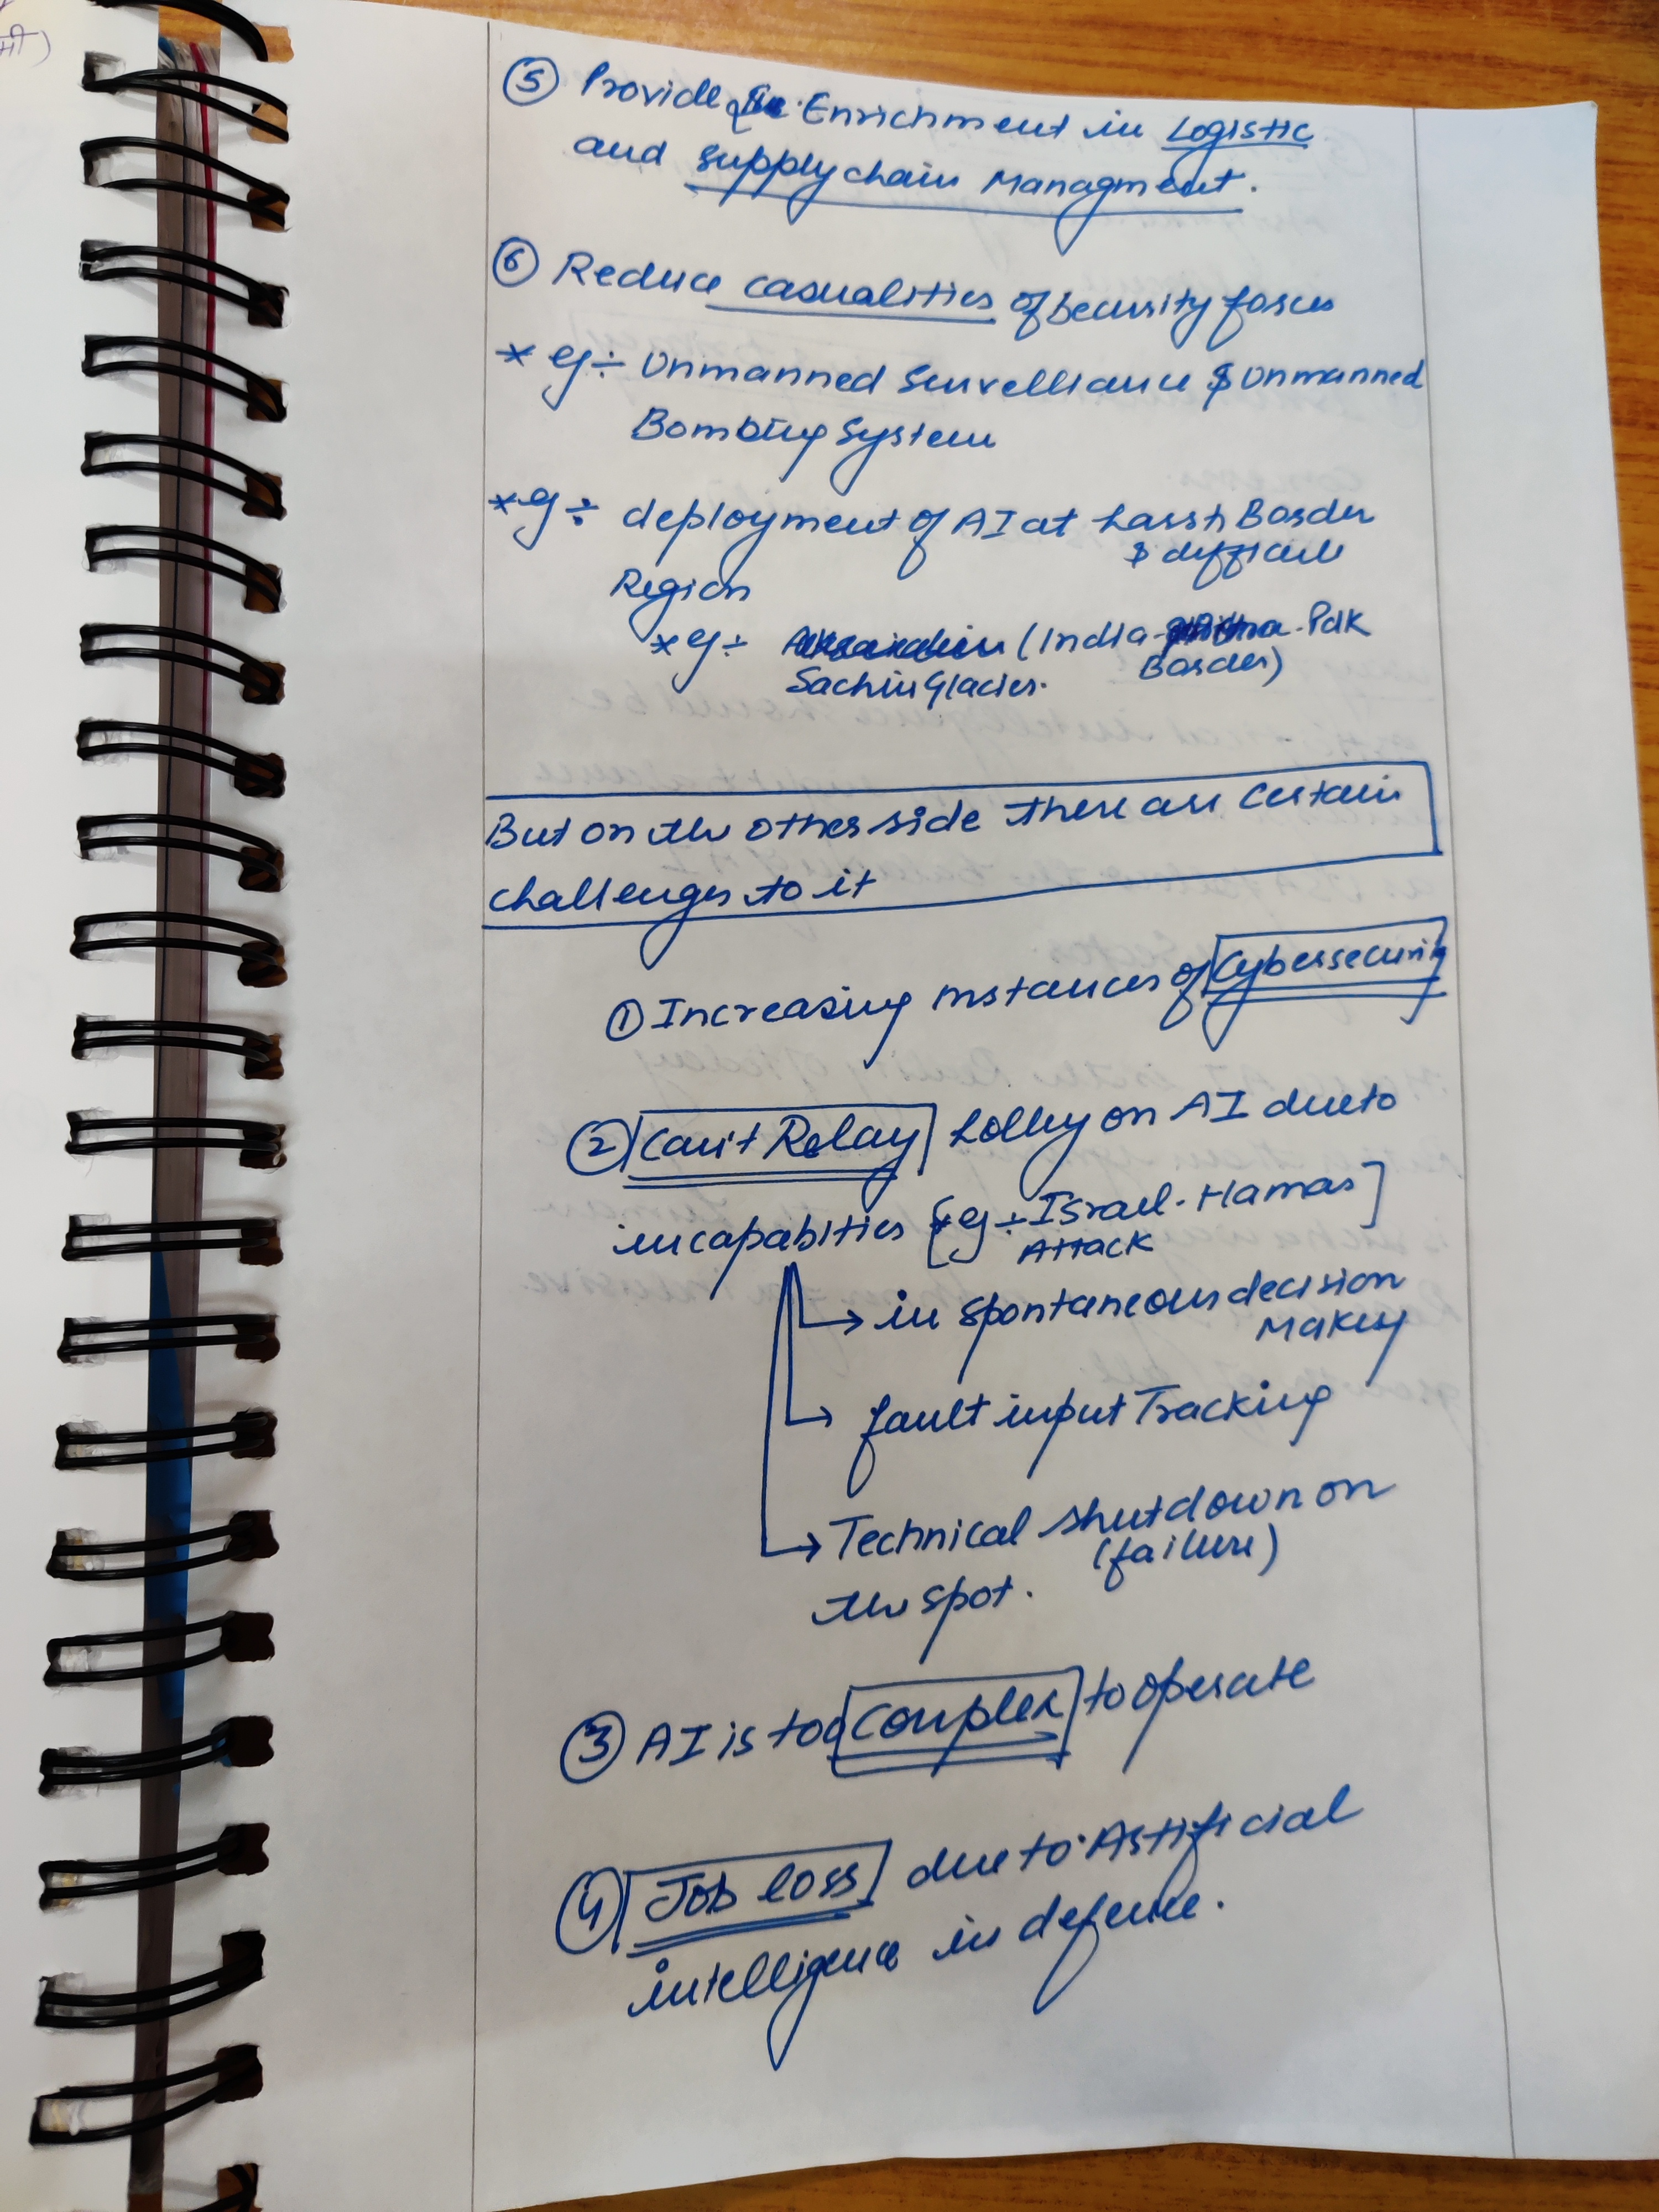 ⑤ Provide Enrichment in Logistic
and supplychain Managment.
⑥ Reduce casualities of Security forces
* eg ÷ Unmanned Survelliance & Unmanned
Bombing System
* eg ÷ deployment of AI at harsh Border
& difficult
Region
* eg ÷ (India - Pak
Border)
Sachin Glacier.
But on the other side there are certain
challenges to it
① Increasing instances of Cybersecurity
② Can't Relay holley on AI due to
incapabities [eg ÷ Israel - Hamas]
Attack
→ in spontaneous decision
Making
→ fault input Tracking
→ Technical shutdown on
(failure)
the spot.
③ AI is too Complex to operate
④ Job loss due to Artificial
intelligence in defence.